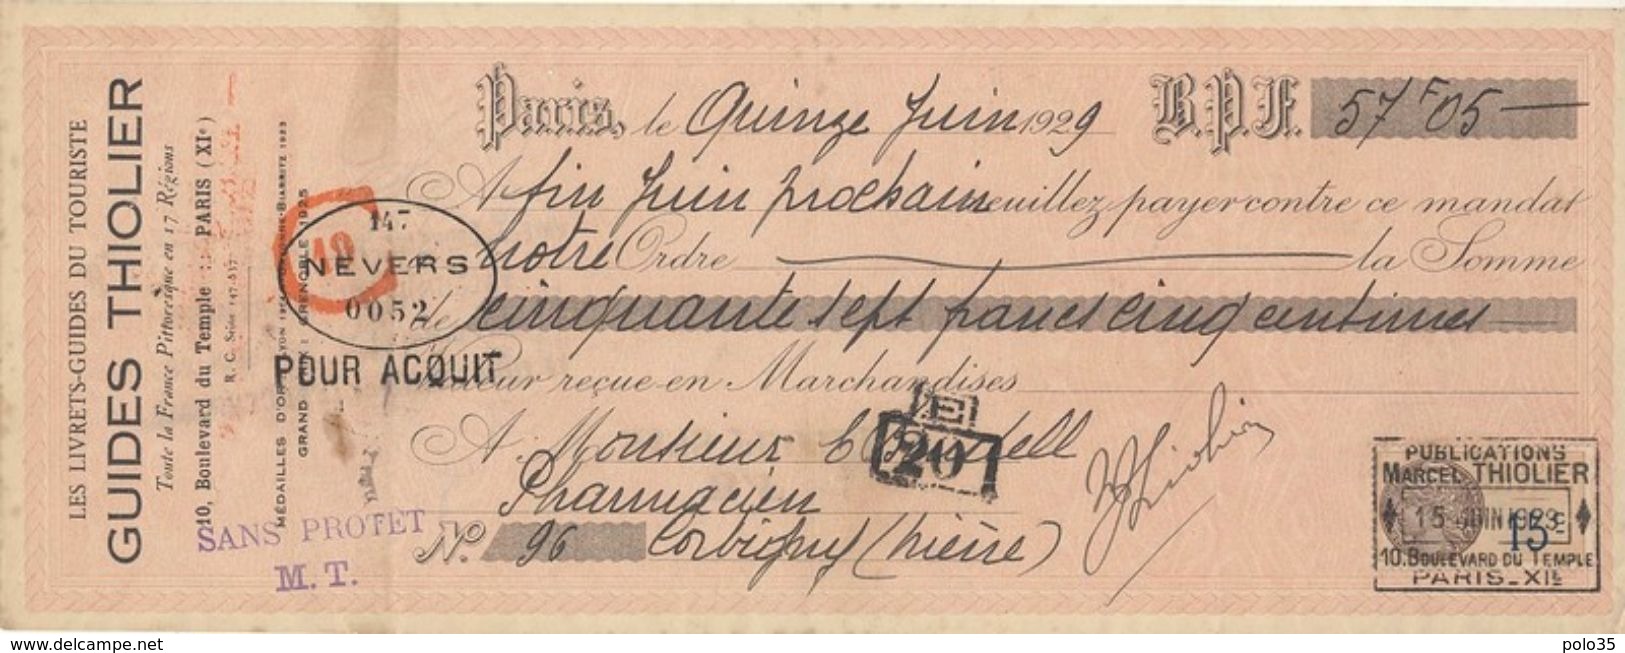 LES LIVRETS-GUIDES DU TOURISTE
GUIDES THIOLIER
Toute la France Pittoresque en 17 Régions
10, Boulevard du Temple PARIS (XIe)
R. C. Seine
MÉDAILLES D'OR
BIARRITZ 1923
GRAND PRIX : GRENOBLE 1925
SANS PROTET
M. T.
Paris, le Quinze Juin 1929 B.P.F. 57F05
A fin Juin prochain veuillez payer contre ce mandat
à notre Ordre la Somme
de cinquante sept francs cinq centimes
Valeur reçue en Marchandises
A Monsieur
Pharmacien
No. 96 Corbigny (Nièvre)
147
NEVERS
0052
POUR ACQUIT
19
E
20
Thiolier
PUBLICATIONS
MARCEL THIOLIER
15 JUIN 1929
15c
10. BOULEVARD DU TEMPLE
PARIS_XIE
www.delcampe.net
polo35